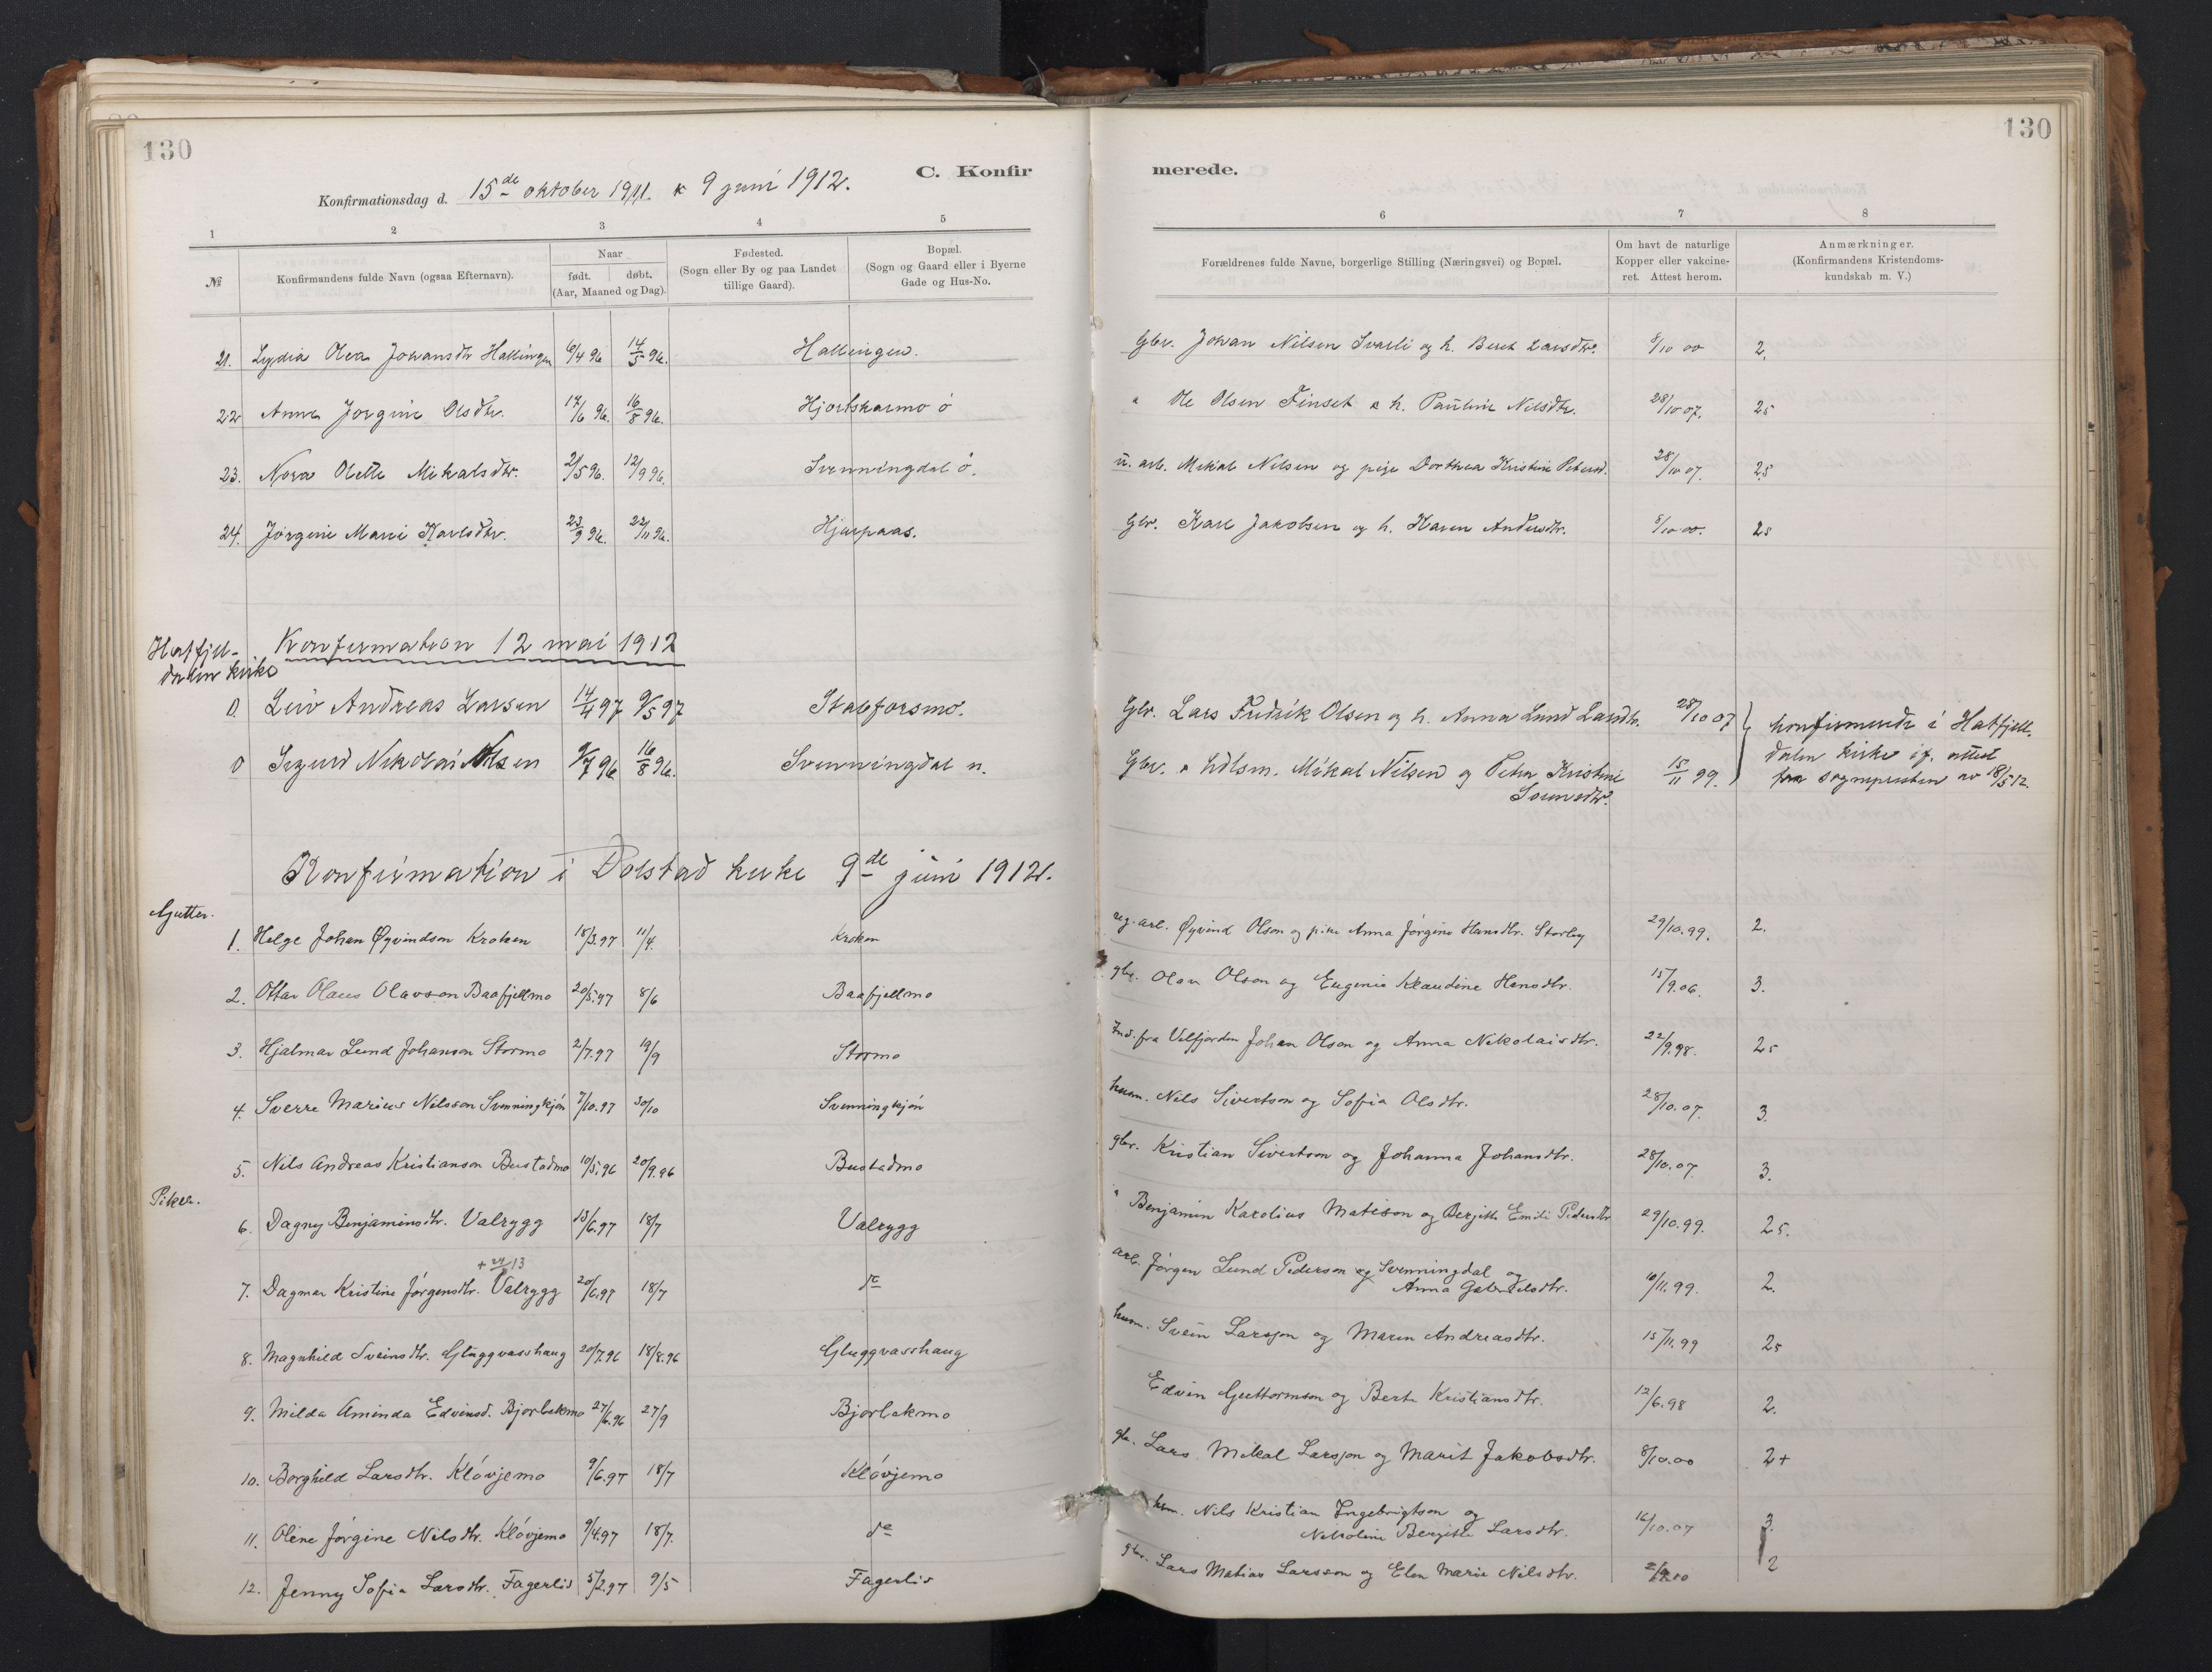 130
130
C. Konfir
merede.
Konfirmationsdag d. 15de oktober 1911. & 9 juni 1912.
1 2 3 4 5 6 7 8
№
Konfirmandens fulde Navn (ogsaa Efternavn).
Naar
født. døbt.
(Aar, Maaned og Dag).
Fødested.
(Sogn eller By og paa Landet
tillige Gaard).
Bopæl.
(Sogn og Gaard eller i Byerne
Gade og Hus-No.
Forældrenes fulde Navne, borgerlige Stilling (Næringsvei) og Bopæl.
Om havt de naturlige
Kopper eller vakcine-
ret. Attest herom.
Anmærkninger.
(Konfirmandens Kristendoms-
kundskab m. V.)
21. Lydia Olea Johansdtr Hallingen 6/4 96 14/5 96. Hallingen. Gbr. Johan Nilsen Svarli og h. Beret Larsdtr. 8/10 00 2.
22 Anna Jorgine Olsdtr. 17/6 96. 16/8 96. Hjortskarmo ö " Ole Olsen Finset & h. Pauline Nilsdtr. 28/10 07. 2s
23. Nora Olette Mikalsdtr. 21/5 96. 12/9 96. Svenningdal ö. u. arb. Mikal Nilsen og pige Dorthea Kristine Petersd. 28/10 07. 2s
24. Jörgine Marie Karlsdtr. 23/9 96. 22/11 96. Hjurpaas. Gbr. Karl Jakobsen og h. Karen Andersdtr. 8/10 00. 2s
Hatfjel-
dalen kirke
Konfirmation 12 mai 1912
0. Leiv Andreas Larsen 14/4 97 9/5 97 Stabforsmo. Gbr. Lars Fredrik Olsen og h. Anna Lund Larsdtr. 28/10 07 konfirmerede i Hatfjell-
0 Sigurd Nikolai Nilsen 9/7 96 16/8 96. Svenningdal n. Gbr. & hdlsm. Mikal Nilsen og Petra Kristine 15/11 99. dalen kirke if. attest
Sørensdtr. fra sognepresten av 18/5 12.
Konfirmation i Dolstad kirke 9de juni 1912.
Gutter.
1. Helge Johan Øyvindson Kroken 18/3.97 11/4. Kroken reg. arb. Øyvind Olson og pike Anna Jörgine Hansdtr. Storby 29/10.99. 2.
2. Ottar Olaus Olavson Baafjellmo 20/5.97 8/6 Baafjellmo gbr. Olav Olson og Eugenie Klaudine Hansdtr. 15/9.06. 3.
3. Hjalmar Lund Johanson Stormo 2/7.97 19/9 Stormo Ind. fra Velfjorden Johan Olson og Anna Nikolaisdtr. 22/9.98. 2s
4. Sverre Marius Nilsson Svenningkjön 7/10.97 30/10 Svenningkjön husm. Nils Sivertson og Sofia Olsdtr. 28/10.07. 3.
5. Nils Andreas Kristianson Bustadmo 10/5.96 20/9.96 Bustadmo gbr. Kristian Sivertson og Johanna Johansdtr. 28/10.07. 3.
Piker.
6. Dagny Benjaminsdtr. Valrygg 13/6.97 18/7 Valrygg " Benjamin Karolius Matison og Bergitte Emilie Pedersdtr 29/10.99. 2s.
7. Dagmar Kristine Jörgensdtr. Valrygg 20/6.97 18/7 do arb. Jörgen Lund Pederson Svenningdal og
Anna Gabrielsdtr. 10/11.99. 2.
8. Magnhild Sveinsdtr. Gluggvasshaug 20/7.96 18/8.96 Gluggvasshaug husm. Svein Larsson og Maren Andreasdtr. 15/11.99 2s
9. Milda Aminda Edvinsd. Bjorbekmo 27/6.96 27/9 Bjorbekmo Edvin Guttormson og Berta Kristiansdtr. 12/6.98 2.
10. Borghild Larsdtr. Klóvjemo 9/6.97 18/7 Klóvjemo gbr. Lars Mikal Larsson og Marit Jakobsdtr. 8/10.00 2+
11. Oline Jórgine Nilsdtr. Klóvjemo 9/4.97 18/7. do hsm. Nils Kristian Ingebrigtson og
Nikoline Bergitte Larsdtr. 16/10.07 3.
12. Jenny Sofia Larsdtr. Fagerlis 5/2.97 9/5 Fagerlis gbr. Lars Matias Larsson og Elen Marie Nilsdtr. 2